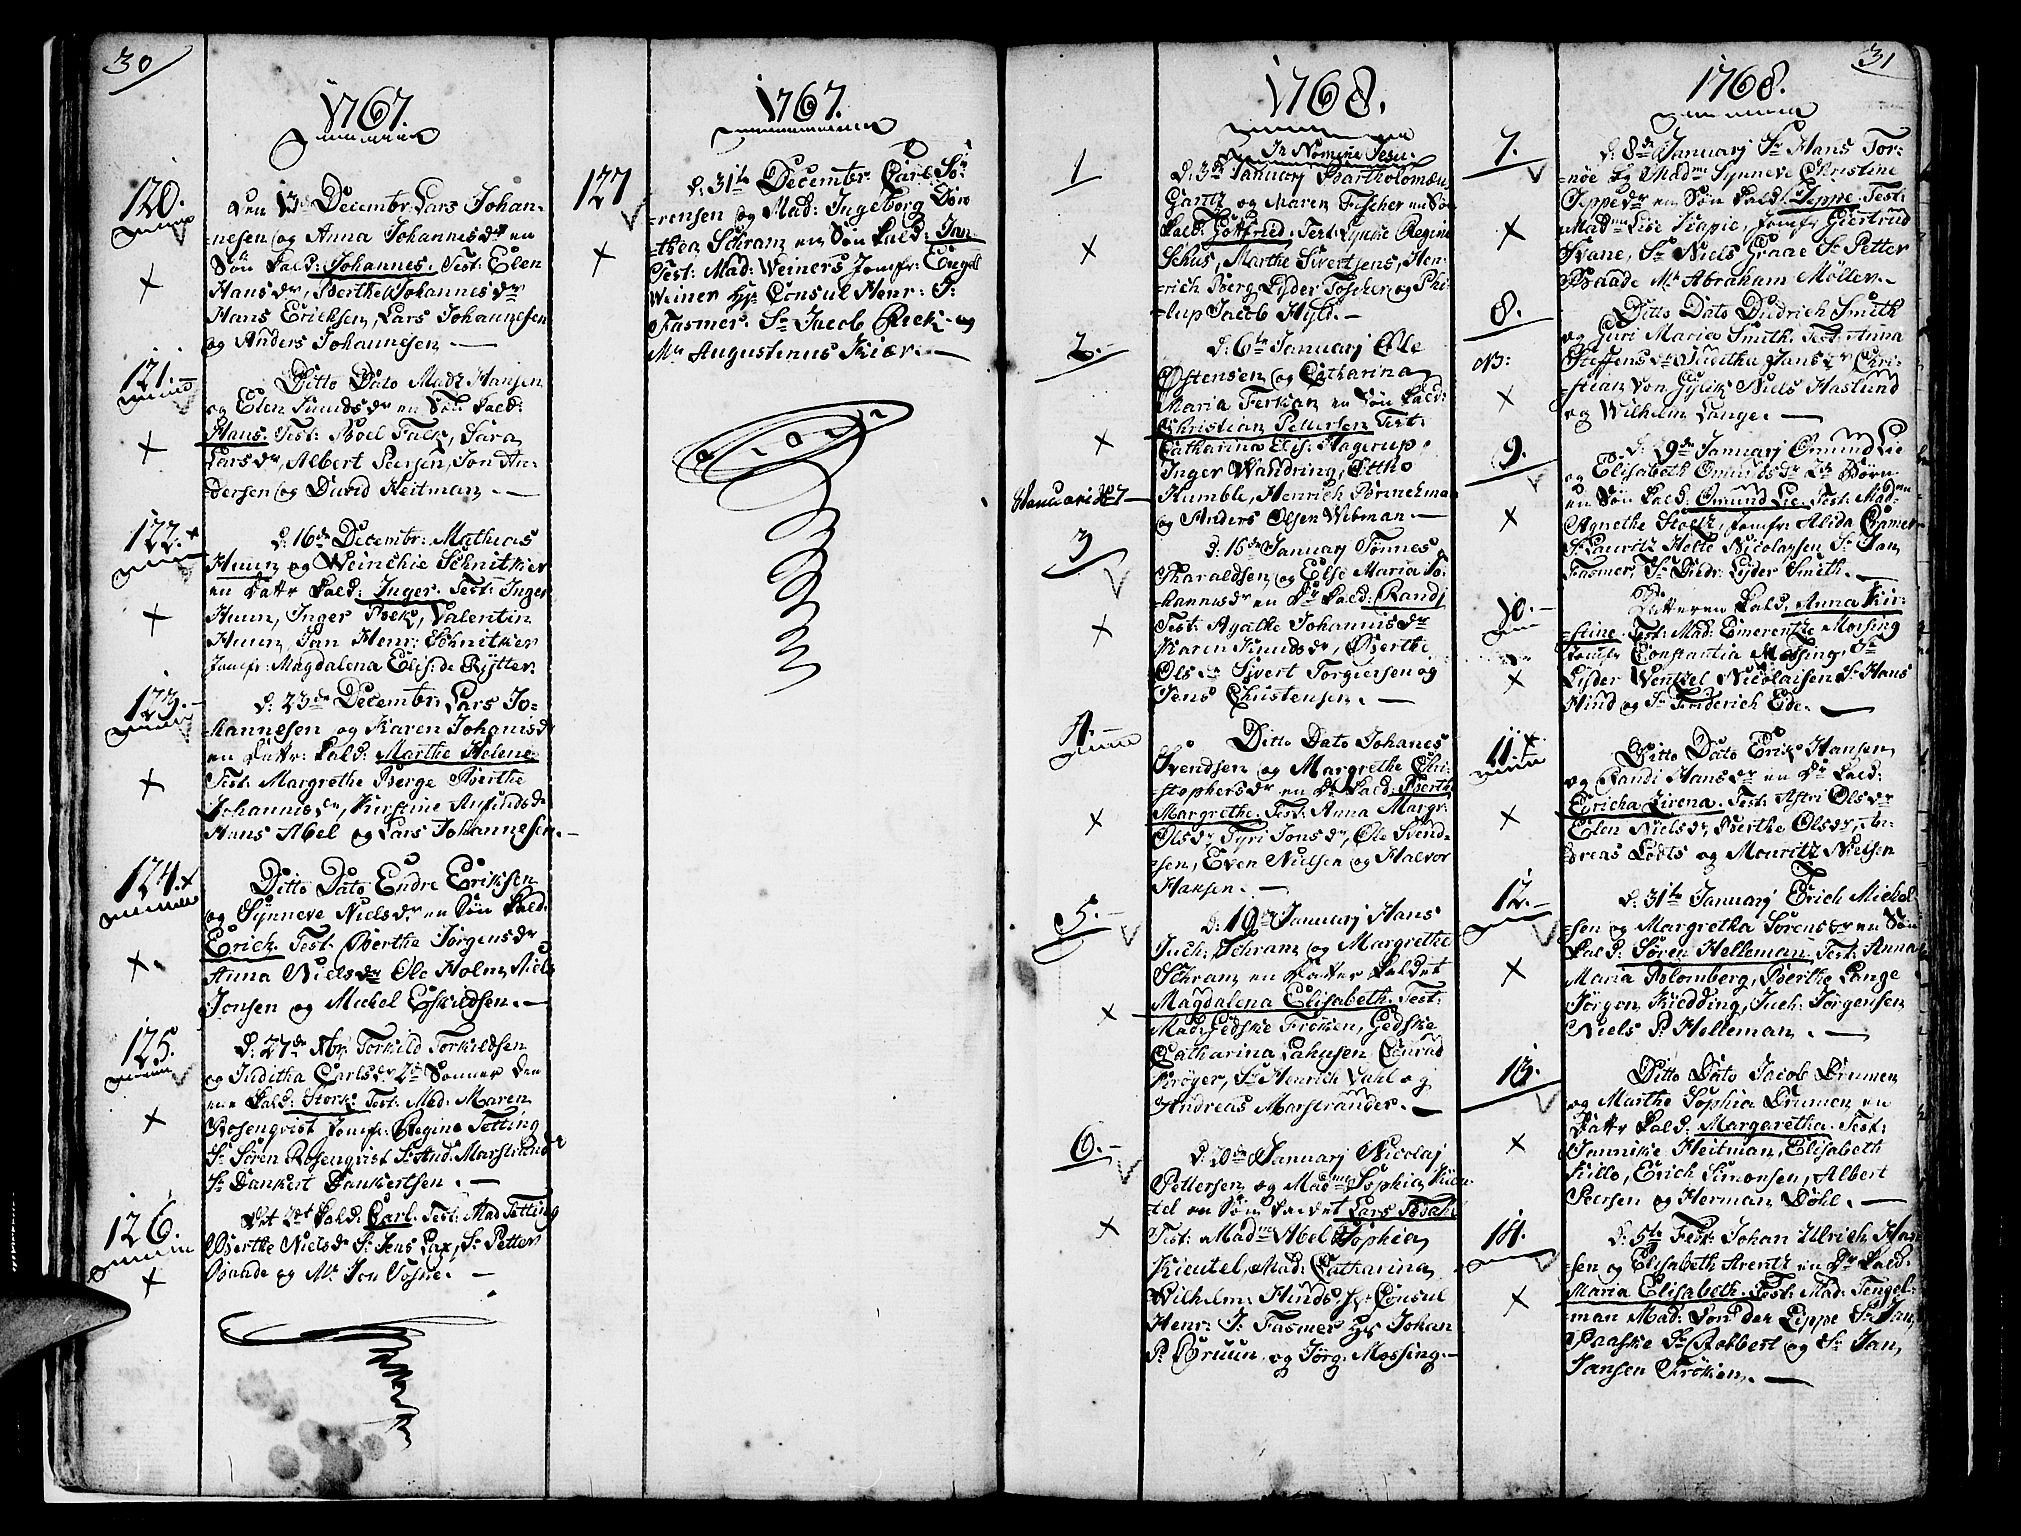 30
1767.
120.
den 13de Decembr: Lars Johan-
nesen og Anna Johannesdr en
Søn kald: Johannes. Test: Elen
Hansdr, Berthe Johannesdr
Hans Ericksen, Lars Johannesen
og Anders Johannesen.
121.
Ditto Dato Madz Hansen
og Elen Knudsdr en Søn kald:
Hans. Test: Boel Falk, Sara
Larsdr, Albert Peersen, Jon An-
dersen og David Heitman.
122.
d: 16de Decembr: Mathias
Huun og Weinchie Schnitker
en Dattr kald: Inger. Test: Inger
Huun, Inger Beck, Valentin
Huun, Jan Henr: Schnitker
Jomfr: Magdalena Elis: de Rytter.
123.
d: 23de Decembr: Lars Jo-
hannesen og Karen Johanisdr
en Dattr: kald: Marthe Helene
Test: Margrethe Berge Berthe
Johannisdr, Kirstine Amundsdr
Hans Abel og Lars Johannesen.
124.
Ditto Dato Endre Eriksen
og Synneve Nielsdr en Søn kald:
Erick. Test: Berthe Jørgensdr
Anna Nielsdr Ole Holm, Niels
Jonsen og Michel Eskildsen.
125.
d: 27de Xbr Torkild Torkildsen
og Juditha Carlsdr 2de Sønner den
ene kald: Stork. Test: Mad: Maren
Rosenqvist Jomfr: Regine Tetting
Sr Søren Rosenqvist Sr And: Marstrand
Sr Dankert Dankertsen.
126.
det 2det kald: Carl. Test: Mad Tetting
Berthe Nielsdr Sr Jens Lax, Sr Petter
Baade og Mr Jon Vosne.
1767.
127
d: 31te Decembr: Carl Sø-
rensen og Mad: Ingeborg Doro-
thea Schram en Søn kald: Jan
Test: Mad: Weiners Jomfr: Engel
Weiner Hr Consul Henr: J:
Fasmer. Sr Jacob Beck og
Mr Augustinus Kiær.
1768.
In Nomine Jesu.
1
d: 3de Januarj Bartholomæus
Gantz og Maren Fischer en Søn
kald: Gotfried. Test: Lyche Regine
Schus, Marthe Sivertsens, Hen-
rich Berg Lyder Foscher og Phi-
lup Jacob Hyld.
2.
d: 6te Januarj Ole
Østensen og Catharina
Maria Ferkian en Søn kald:
Christian Pettersen Test:
Catharina Elis: Hagerup,
Inger Wandring, Ottho
Humble, Henrich Børnichman
og Anders Olsen Wibman.
3
d: 16de Januarj Tønnes
Haraldsen og Else Maria Jo-
hannisdr en Dr kald: Randj
Test: Agathe Johannisdr
Karen Knudsdr, Berthe
Olsdr Sivert Torgiersen og
Jens Christensen.
4.
Ditto Dato Johanes
Svendsen og Margrethe Chri-
stophersdr en Dr kald: Berthe
Margrethe. Test: Anna Margr:
Olsdr Tyri Jonsdr, Ole Svend-
sen, Even Nielsen og Halvor
Hansen.
5.
d: 19de Januarj Hans
Juch: Schram og Margrethe
Schram en Datter kaldet
Magdalena Elisabeth. Test:
Mad: Gedske Frøken, Gedske
Catharina Lahusen Conrad
Krøger, Sr Henrich Dahl og
Andreas Marstrander.
6.
d: 20de Januarj Nicolaj
Pettersen og Madme Sophia Kien-
tel en Søn kaldet Lars
Test: Madme Abel Sophia
Kientel, Mad: Catharina
Wilhelm: Hinds. Hr Consul
Henr: J: Fasmer Hr Johan
P: Bruun og Jørg: Mossing.
31
1768.
7.
d: 8de Januarj Sr Hans Tor-
nøe og Madme Synneve Christine
Jeppedr en Søn kald: Jeppe. Test:
Madme Lise Trapie, Jomfr Giertrud
Svane, Sr Niels Graae Sr Petter
Baade Mr Abraham Møller.
8.
NB:
Ditto Dato Diedrich Smith
og Guri Maria Smith. Test: Anna
Steffensdr Juditha Jansdr Chri-
stian von Gylik Niels Haslund
og Wilhelm Lange.
9.
d: 19de Januarj Omund Lie
og Elisabeth Omundsdr 2de Børn
en Søn kald: Omund Lie. Test: Madme
Agnethe Stoltz, Jomfr: Alida Cramer
Sr Lauritz Holte Nicolaysen Sr Jan
Fasmer, Sr Diedr: Lyder Smith.
10.
Datteren kald: Anna Kir-
stine. Test: Mad: Emerentze Mossing
Jomfr Constantia Mossing. Sr
Lyder Wentzel Nicolaisen Sr Hans
Hind og Sr Friderich Ede.
11.
Ditto Dato Erik Hansen
og Randi Hansdr en Dr kald:
Ericha Lirena. Test: Astri Olsdr
Elen Nielsdr, Berthe Olsdr, An-
dreas Lodts og Mouritz Nielsen
12.
d: 31te Januarj Erich Michel-
sen og Margretha Sørensdr en Søn
kald: Søren Helleman. Test: Anna
Maria Blomberg, Berthe Lange
Jørgen Kiedding, Juch: Jørgensen
Niels P. Helleman.
13.
Ditto Dato Jacob Drumen
og Martha Sophia Drumen en
Dattr kald: Margaretha. Test:
Jannike Heitman, Elisabeth
Killo, Erich Simonsen, Albert
Peersen og Herman Døhl.
14.
d: 5te Febr: Johan Ulrich Han-
sen og Elisabeth Arentz en Dr kald:
Maria Elisabeth. Test: Mad: Tengel-
man Mad: von der Lippe Sr Jan
Paaske Sr Robbert og Sr Jan
Jansen Frøken.